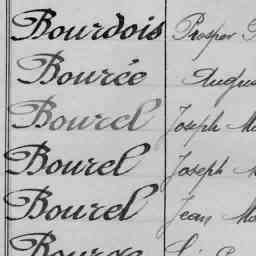 Bourdois Prosper
Bourée
Bourel Joseph
Bourel Joseph
Bourel Jean